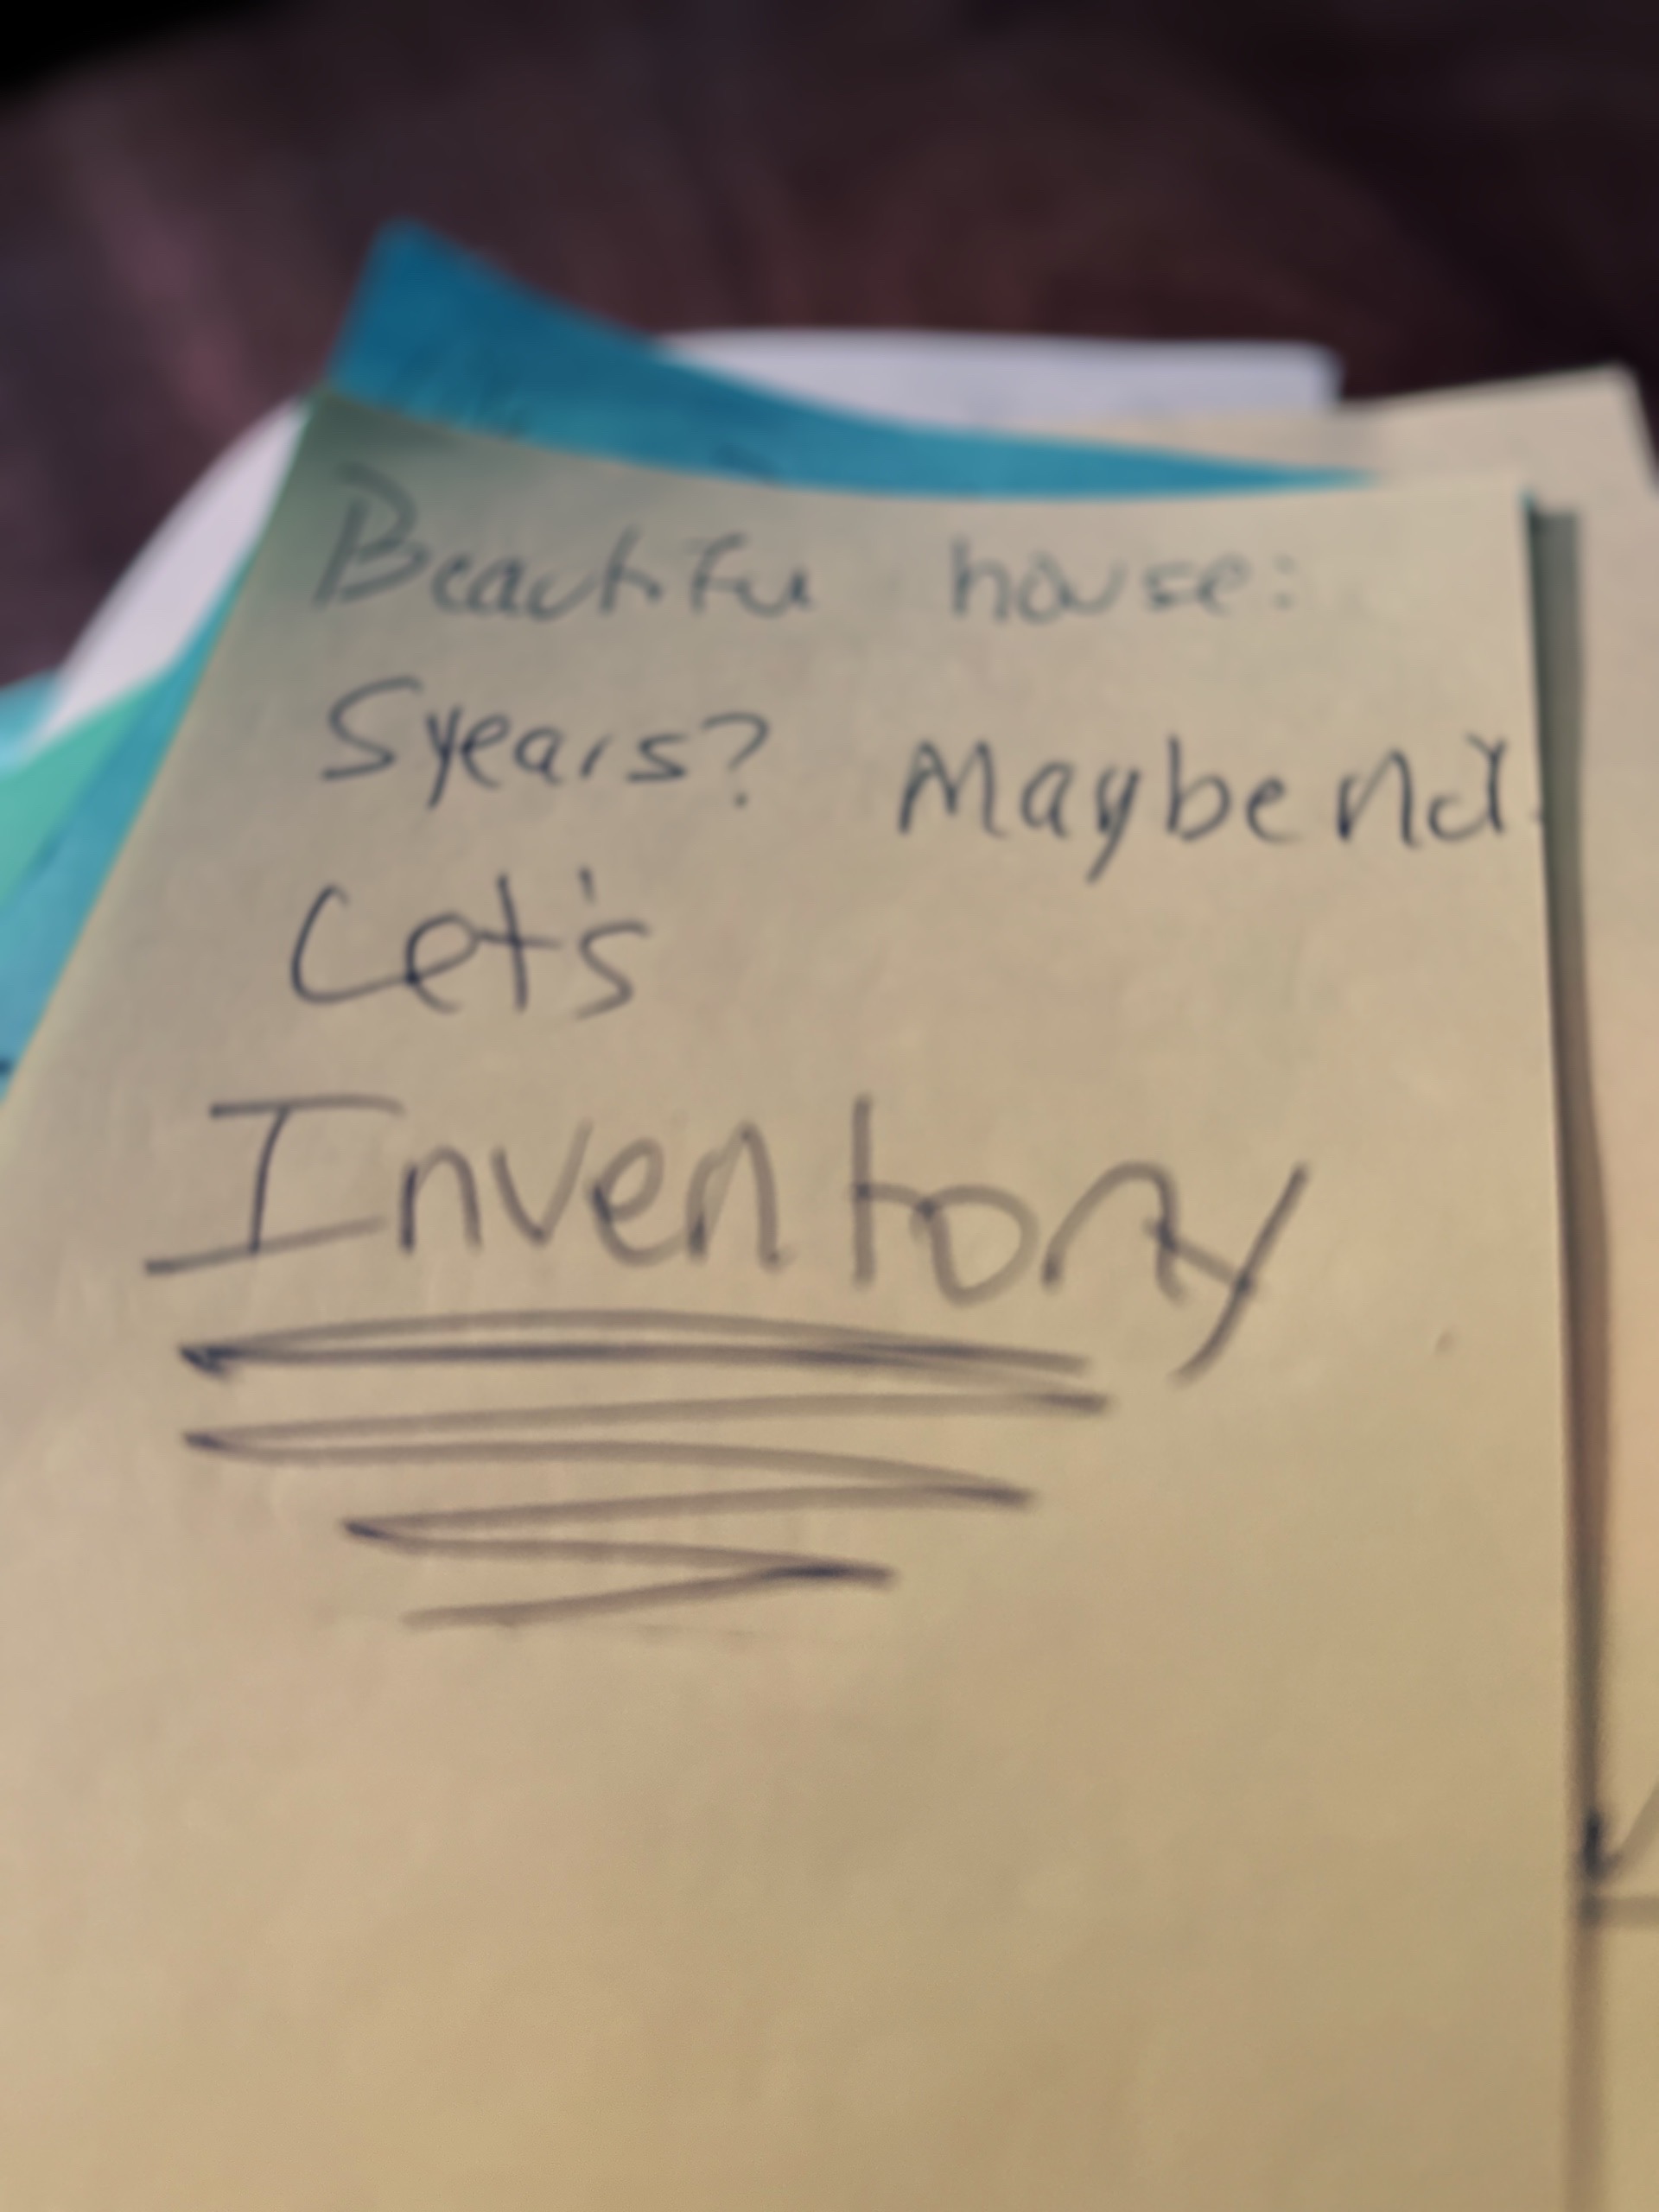 Beautifu house:
5years? Maybe not.
Let's
Inventory